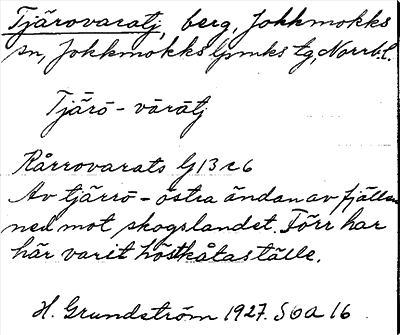 Tjårovaratj, berg, Jokkmokks
sn, Jokkmokks lpmks tg, Norrb. l.
Tjårō - vārātj
Rårrovarats lj 13 c 6
Av tjårrō - östra ändan av fjällen
ned mot skogslandet. Förr har
här varit höstkåtaställe.
H. Grundström 1927. SOA 16